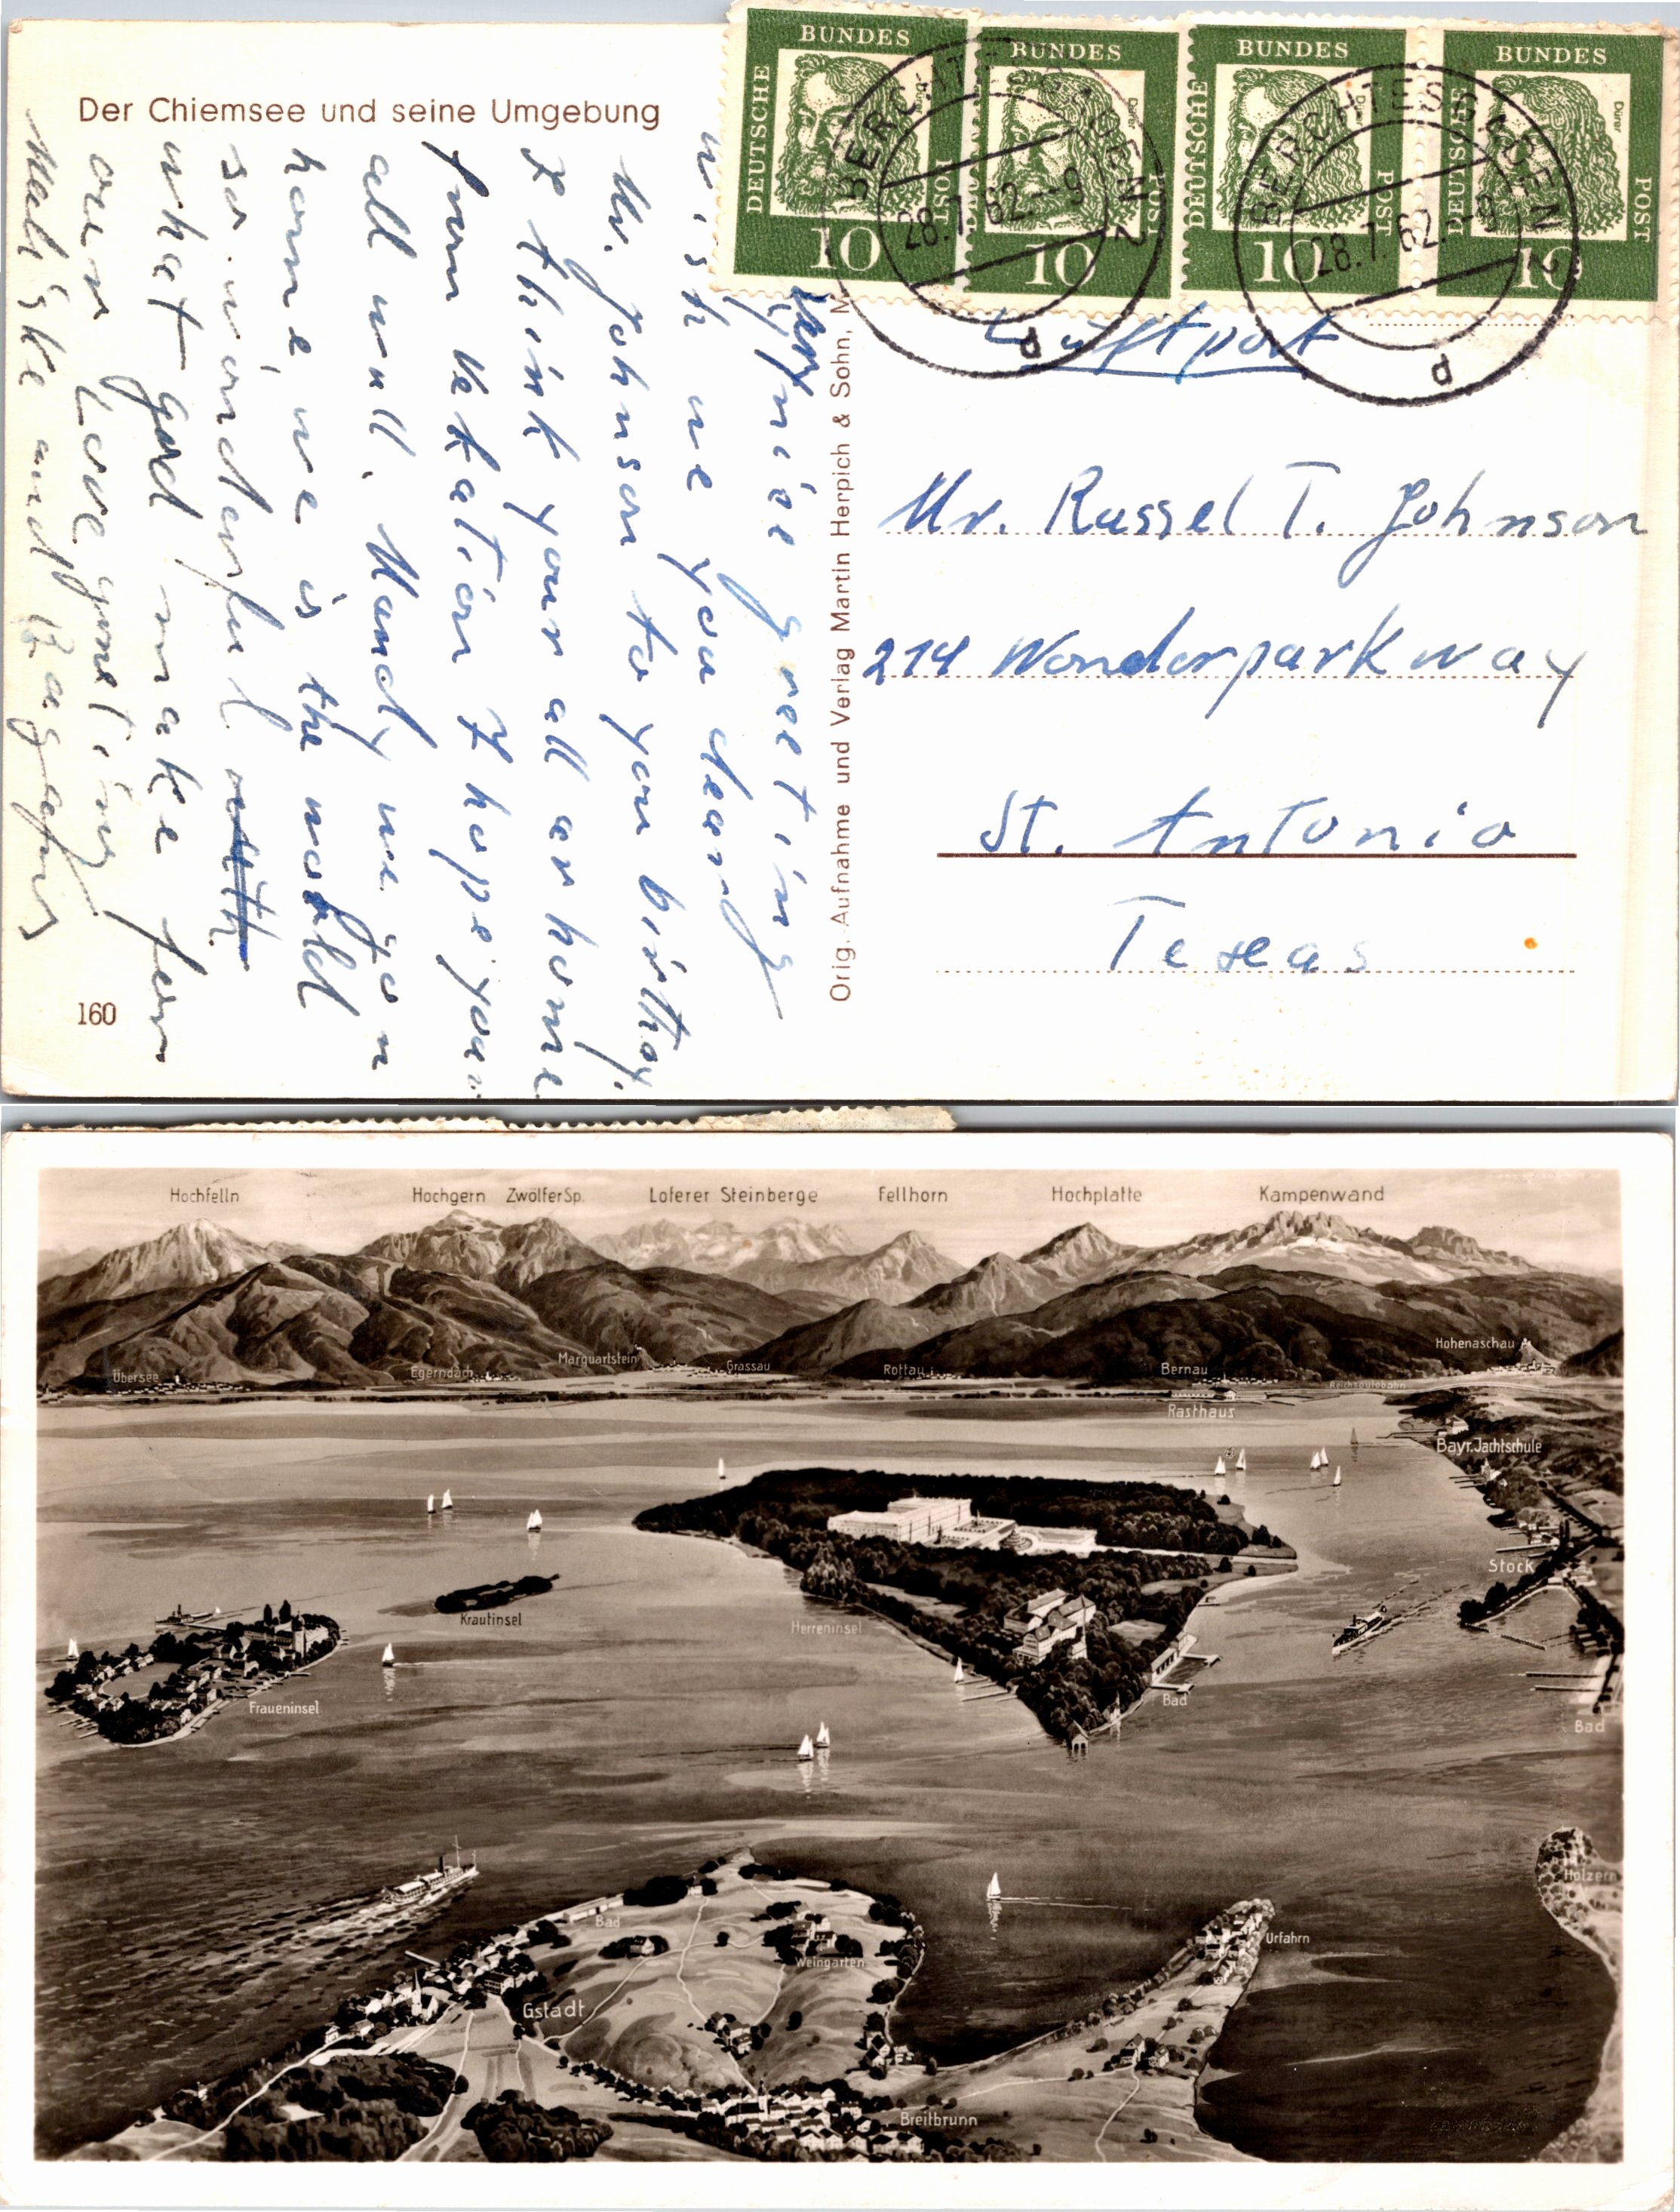 Der Chiemsee und seine Umgebung
DEUTSCHE BUNDES POST
Dürer
10
DEUTSCHE BUNDES POST
Dürer
10
DEUTSCHE BUNDES POST
Dürer
10
DEUTSCHE BUNDES POST
Dürer
10
BERCHTESGADEN 2
28.7.62.-9
d
BERCHTESGADEN 2
28.7.62.-9
d
Luftpost
Very nice greeting
wish we you dear
Mr. Johnson to you birthay.
I think your all ar home
from Vekation I hope you
all well. Mandy we go n
home, we is the world
so wonderful
what god make for
oun Love greeting
Orig. Aufnahme und Verlag Martin Herpich & Sohn, M
Mr. Russel T. Johnson
214 Wonderparkway
St. Antonio
Texas
160
Hochfelln Hochgern Zwölfer Sp. Loferer Steinberge Fellhorn Hochplatte Kampenwand
Hohenaschau
Übersee Egerndach Marquartstein Grassau Rottau Bernau Reichsautobahn
Rasthaus
Bayr. Jachtschule
Stock
Krautinsel
Herreninsel
Fraueninsel
Bad
Bad
Holzern
Bad
Urfahrn
Weingarten
Gstadt
Breitbrunn